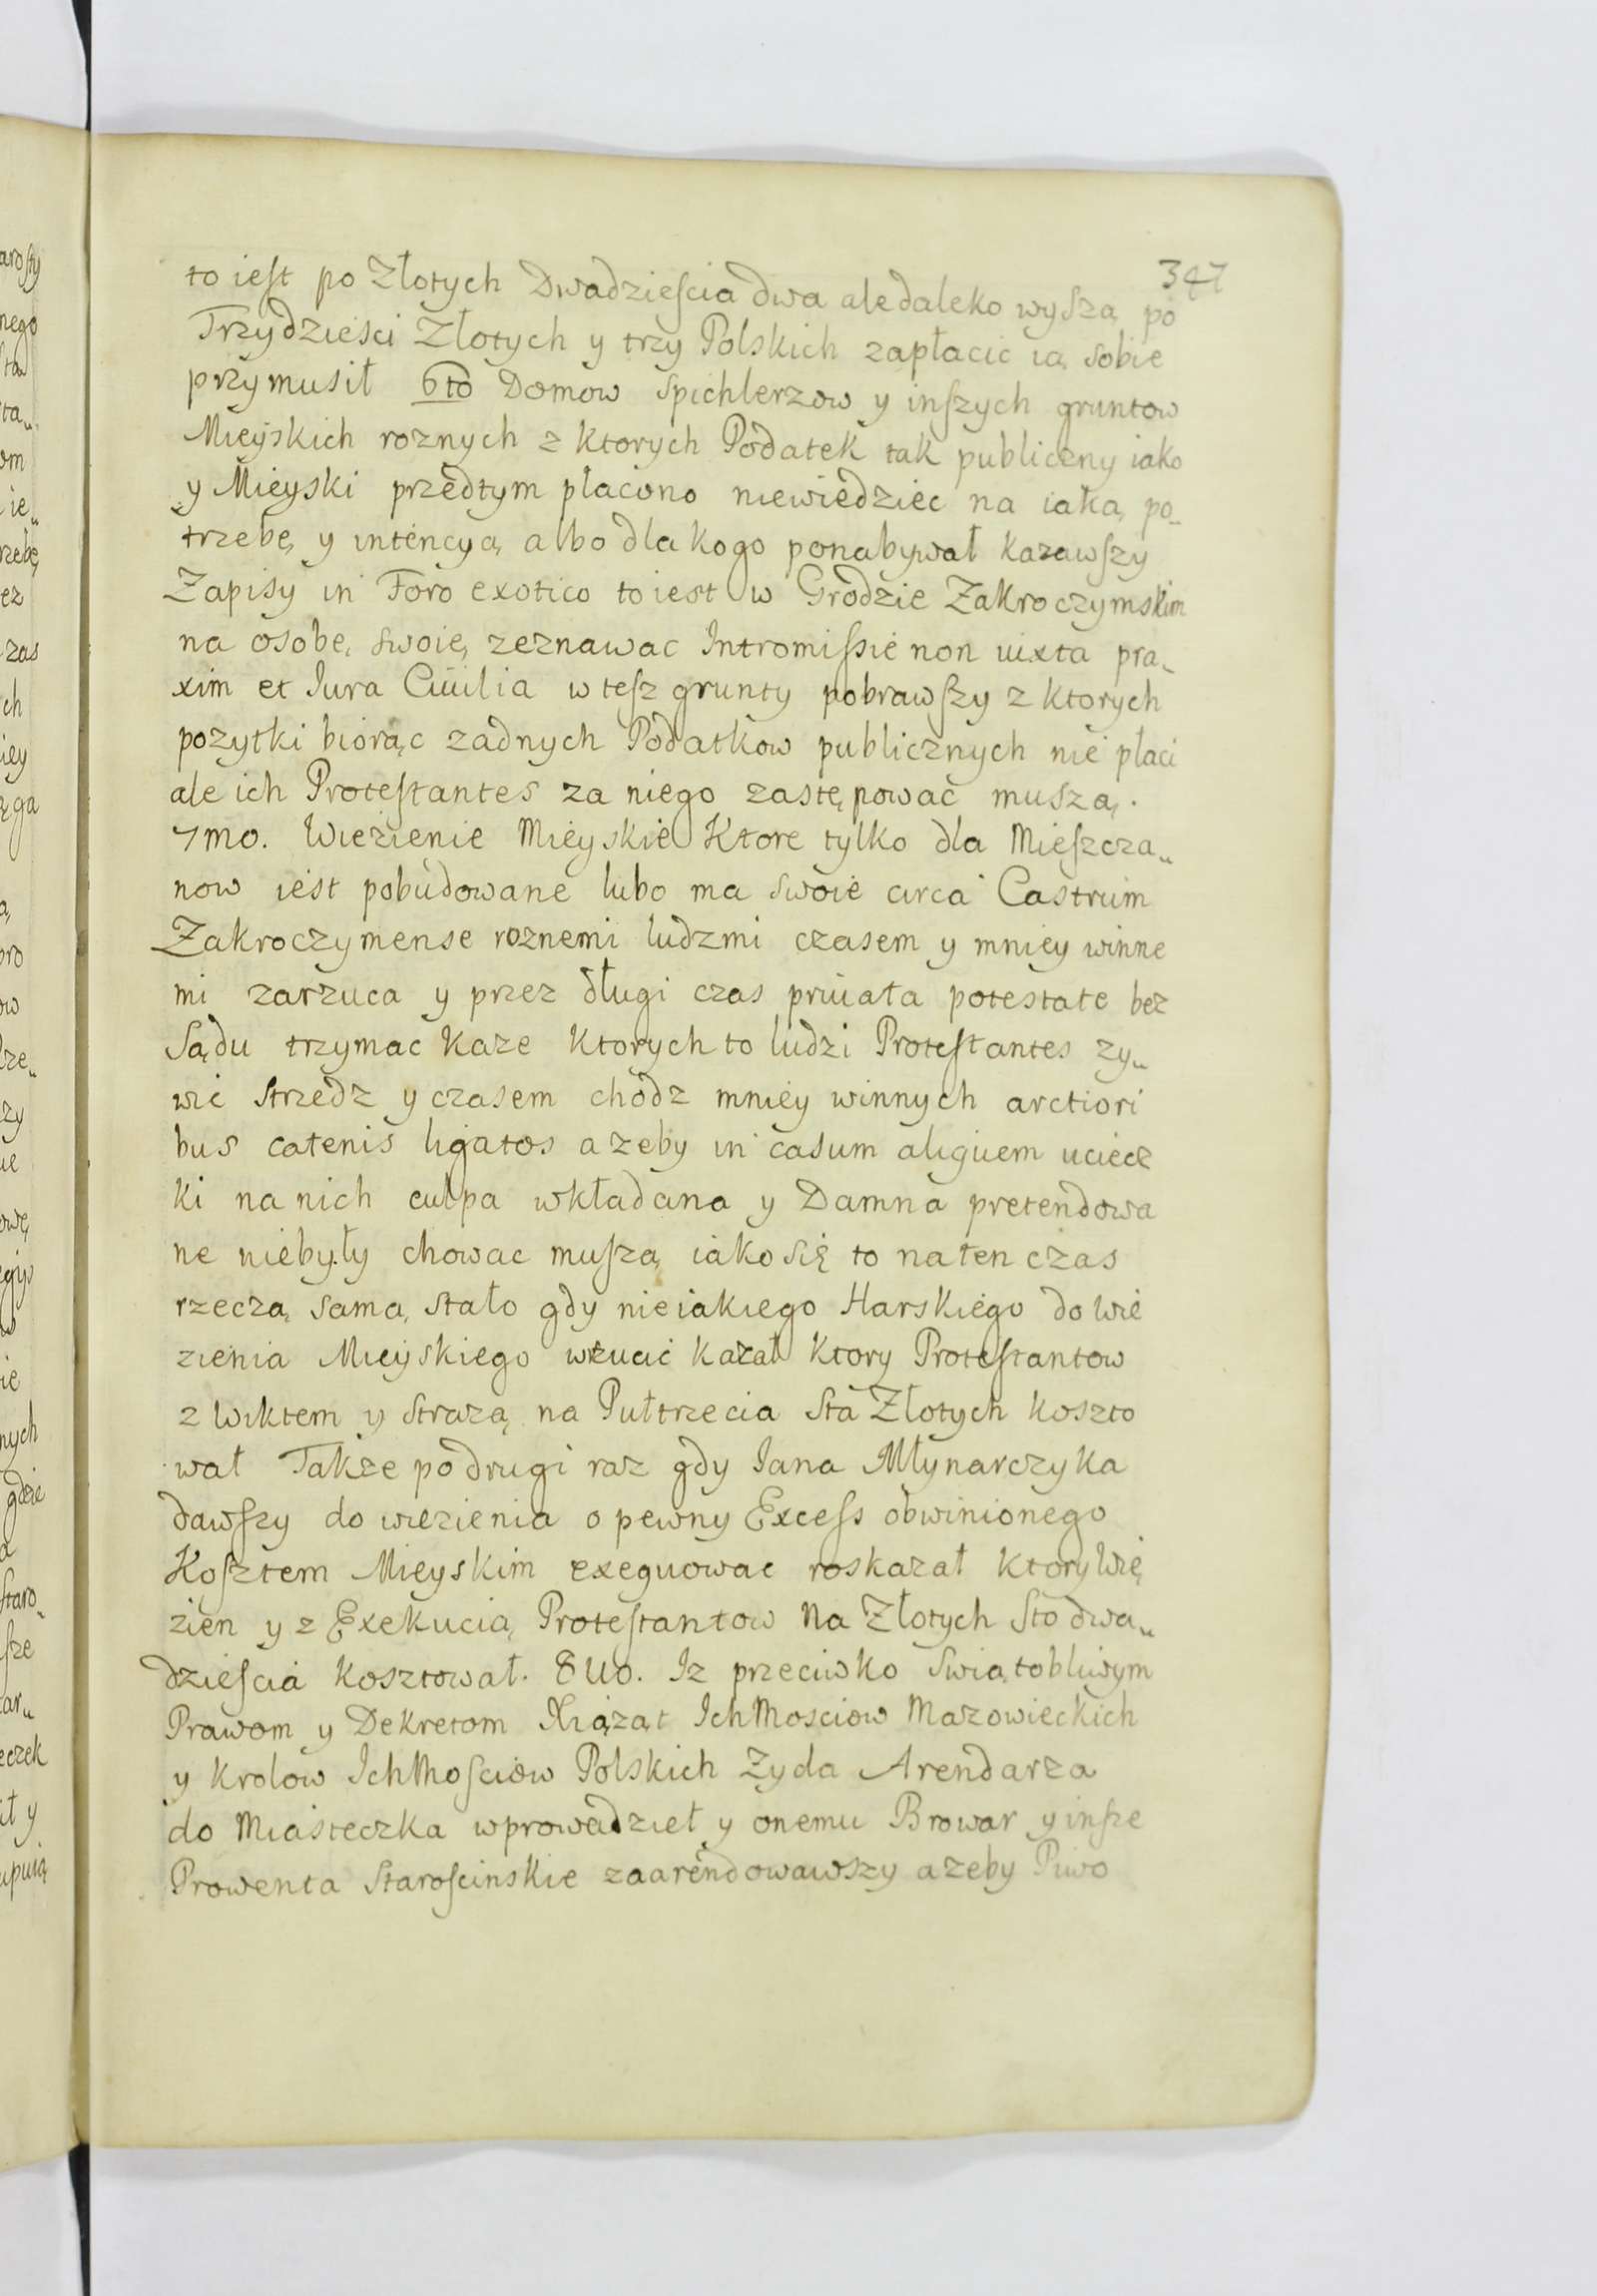 347
to iest po Złotych Dwadzieścia dwa ale daleko wyszą po
Trzydziesci Złotych y trzy Polskich zapłacic ią sobie
przymusił 6to Domow Spichlerzow y inszych gruntow
Mieyskich roznych z ktorych Podatek tak publiczny iako
y Mieyski przedtym płacono niewiedziec na iaką po-
trzebę y intencyą albo dla kogo ponabywał kazawszy
Zapisy in Foro exotico to iest w Grodzie Zakroczymskim
na osobę swoię zeznawac Intromissie non iuxta pra„
xim et Iura Ciuilia w tesz grunty pobrawszy z ktorych
pozytki biorąc zadnych Podatkow publicznych nie płaci
ale ich Protestantes za niego zastępować muszą.
7mo. Wiezienie Mieyskie Ktore tylko dla Mieszcza„
now iest pobudowane lubo ma swoie circa Castrum
Zakroczymense roznemi ludzmi czasem y mniey winne
mi zarzuca y przez długi czas priuata potestate bez
Sądu trzymac kaze ktorych to ludzi Protestantes zy„
wic strzedz y czasem chodz mniey winnych arctiori
bus catenis ligatos azeby in casum aliquem uciecz
ki na nich culpa wkładana y Damna pretendowa
ne niebyły chowac muszą iako się to na ten czas
rzeczą samą stało gdy nieiakiego Harskiego do wie
zienia Mieyskiego wrzucić kazał ktory Protestantow
z wiktem y strazą na Pułtrzecia Sta Złotych koszto
wał Także po drugi raz gdy Iana Młynarczyka
dawszy do wiezienia o pewny Excess obwinionego
Kosztem Mieyskim exequowac roskazał ktory wię
zien y z Exekucią Protestantow na Złotych Sto dwa„
dzieścia kosztował. 8uo. Iz przeciwko Swiątobliwym
Prawom y Dekretom Xiążąt IchMosciow Mazowieckich
y Krolow IchMościow Polskich Zyda Arendarza
do Miasteczka wprowadzieł y onemu Browar y insze
Prowenta Starościnskie zaarendowawszy azeby Piwo